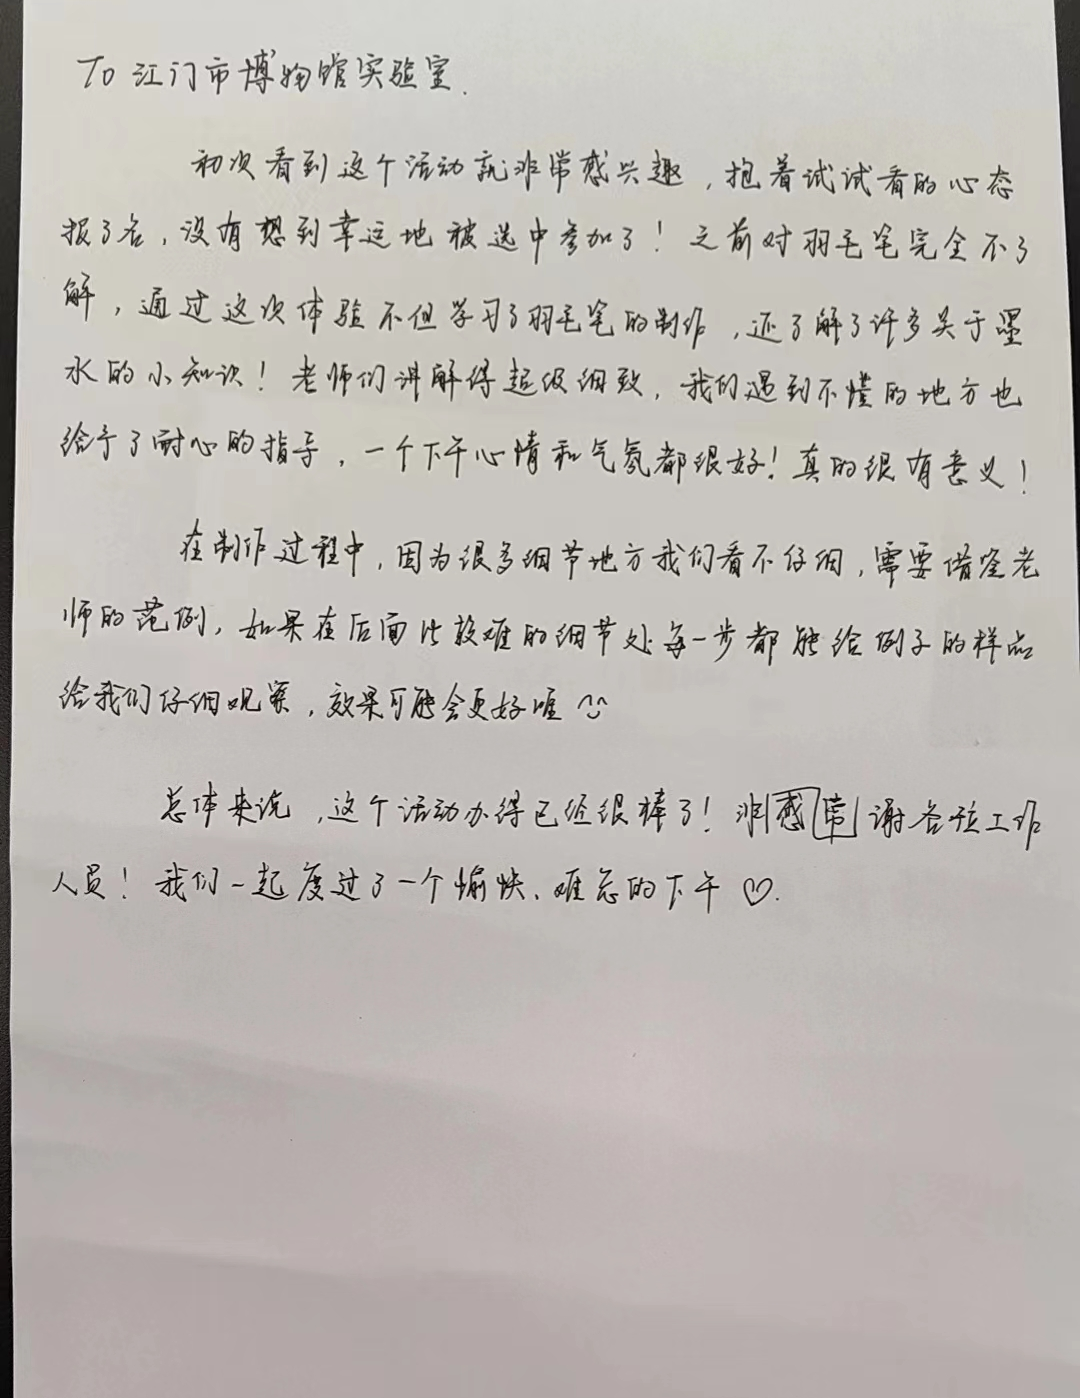 To 江门市博物馆实验室.
初次看到这个活动就非常感兴趣，抱着试试看的心态
报了名，没有想到幸运地被选中参加了！之前对羽毛笔完全不了
解，通过这次体验不但学习了羽毛笔的制作，还了解了许多关于墨
水的小知识！老师们讲解得超级细致，我们遇到不懂的地方也
给予了耐心的指导，一个下午心情和气氛都很好！真的很有意义！
在制作过程中，因为很多细节地方我们看不仔细，需要借鉴老
师的范例，如果在后面比较难的细节处每一步都能给例子的样品
给我们仔细观察，效果可能会更好喔
总体来说，这个活动办得已经很棒了！非感常谢各位工作
人员！我们一起度过了一个愉快、难忘的下午♡.